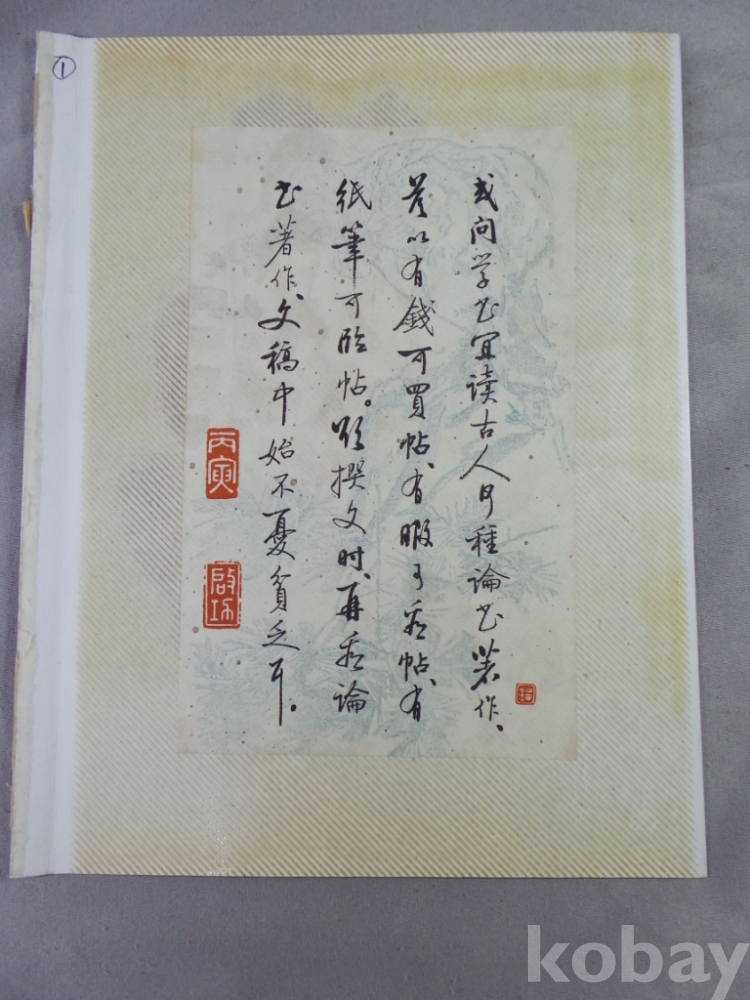 ①
或问学书宜读古人何种論书著作、
答以有錢可買帖、有暇可看帖、有
紙筆可临帖。欲撰文时、再看論
书著作文稿中始不憂貧乏耳。
丙寅
啟功
kobay